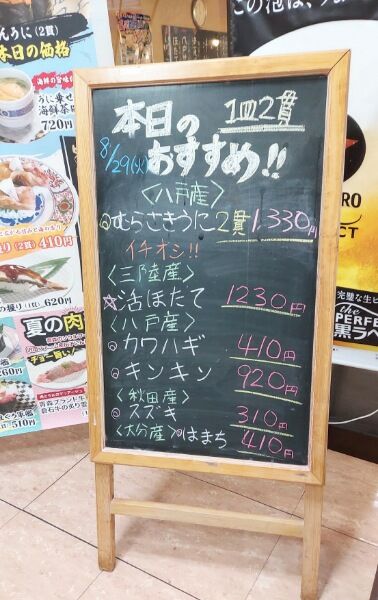 本日の
1皿2貫
8/29(火)
おすすめ!!
〈八戸産〉
むらさきうに2貫1,330円
イチオシ!!
〈三陸産〉
☆活ほたて 1230円
〈八戸産〉
カワハギ 410円
キンキン 920円
〈秋田産〉
スズキ 310円
〈大分産〉はまち 410円
うに(2貫)
本日の価格
海鮮の旨味
720円
(2貫) 410円
握り(1貫) 620円
夏の肉
チョー旨い!
260円
510円
青森ブランド牛
倉石牛の炙り
完璧な生ビ
the
PERFE
黒ラベ